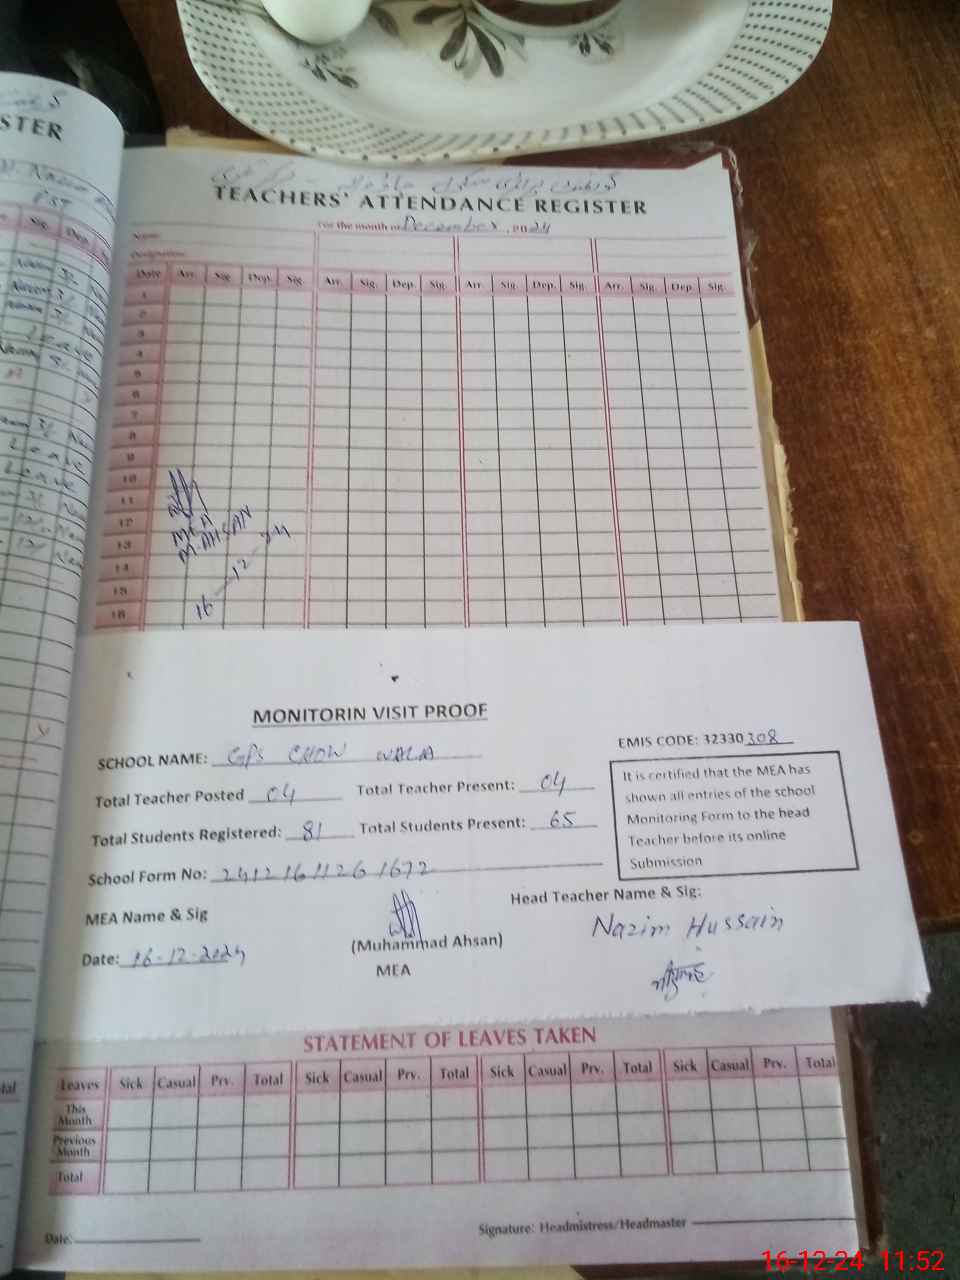 STER
TEACHERS' ATTENDANCE REGISTER
For the month of December, 2024
Name:
Designation:
Date Arr. Sig. Dep. Sig. Arr. Sig. Dep. Sig. Arr. Sig. Dep. Sig. Arr. Sig. Dep. Sig.
1
2
3
4
5
6
7
8
9
10
11
12
13
14
15
16
MEA
M.AHSAN
16-12-24
MONITORIN VISIT PROOF
SCHOOL NAME: GPS CHOW WALA
EMIS CODE: 32330308
Total Teacher Posted 04 Total Teacher Present: 04
Total Students Registered: 81 Total Students Present: 65
School Form No: 24121611261672
It is certified that the MEA has
shown all entries of the school
Monitoring Form to the head
Teacher before its online
Submission
MEA Name & Sig
(Muhammad Ahsan)
MEA
Date: 16-12-2024
Head Teacher Name & Sig:
Nazim Hussain
STATEMENT OF LEAVES TAKEN
Leaves Sick Casual Prv. Total Sick Casual Prv. Total Sick Casual Prv. Total Sick Casual Prv. Total
This Month
Previous Month
Total
Date:
Signature: Headmistress/Headmaster
16-12-24 11:52